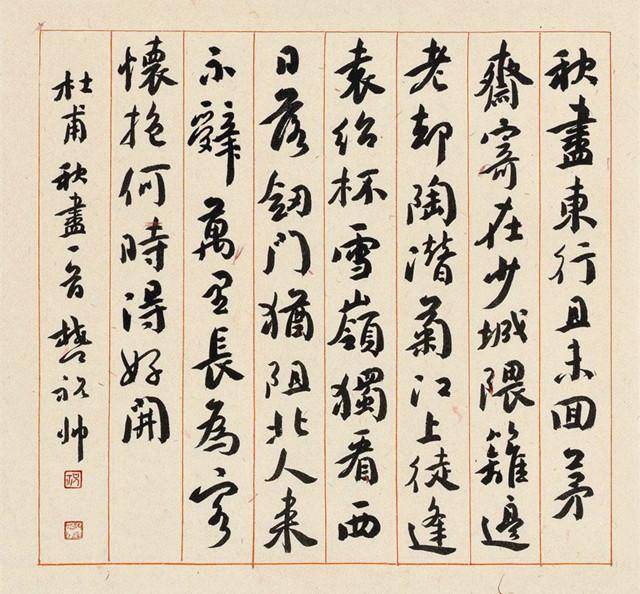 秋盡東行且未囬茅
齋寄在少城隈籬邊
老却陶潛菊江上徒逢
袁紹杯雪嶺獨看西
日落劍門猶阻北人来
不辭萬里長為客
懷抱何時得好開
杜甫秋盡一首 祝帅